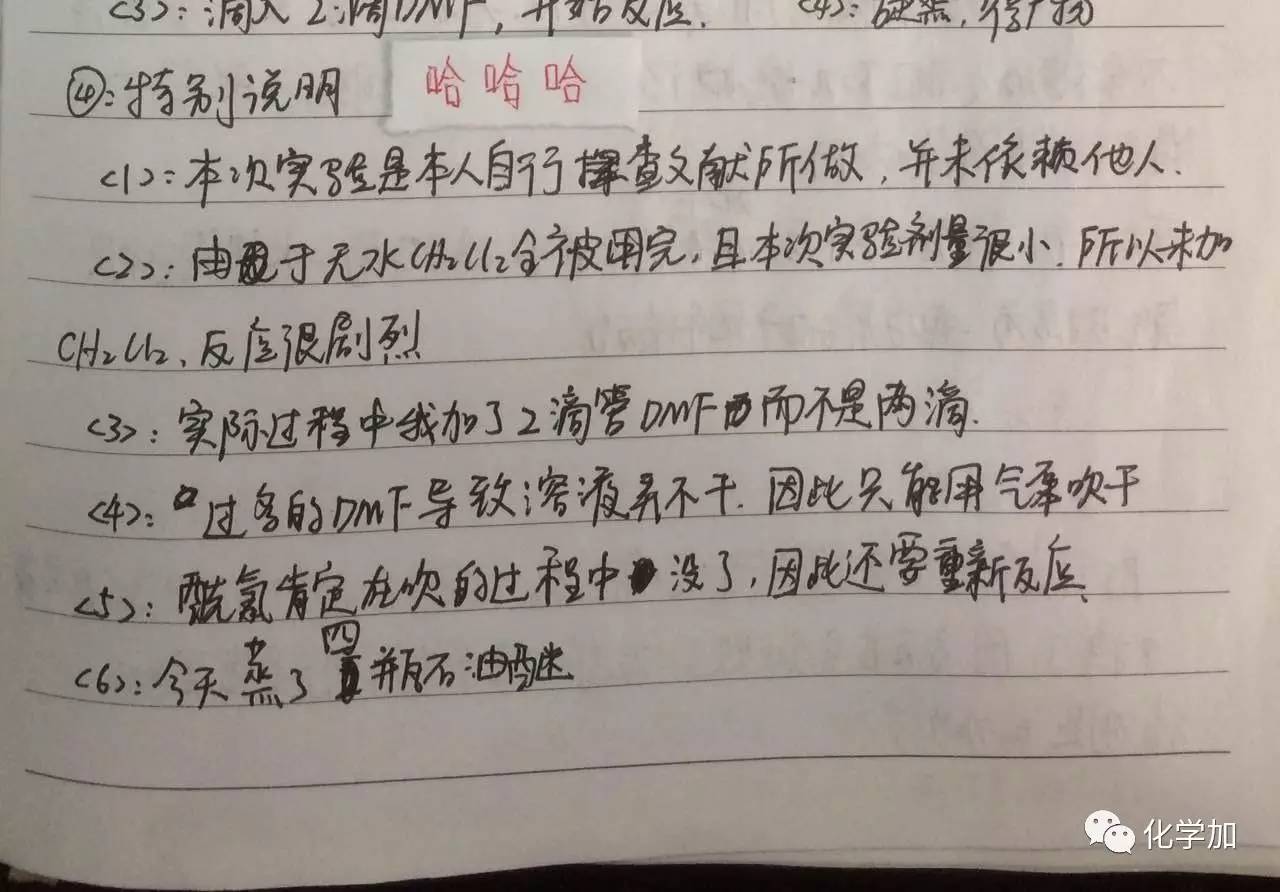 <3>：滴入2滴DMF，开始反应. <4>：旋蒸，得产物
④：特别说明 哈哈哈
<1>：本次实验是本人自行查文献所做，并未依赖他人.
<2>：由于无水CH₂Cl₂全被用完，且本次实验剂量很小.所以未加
CH₂Cl₂，反应很剧烈
<3>：实际过程中我加了2滴管DMF而不是两滴.
<4>：过多的DMF导致溶液弄不干.因此只能用气泵吹干
<5>：酰氯肯定在吹的过程中没了，因此还要重新反应.
<6>：今天蒸了四瓶石油醚
化学加